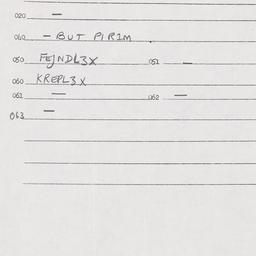 020 —
040 — BUT PIRIM .
050 FEJNDL3X 051 —
060 KREPL3X
061 — 062 —
063 —